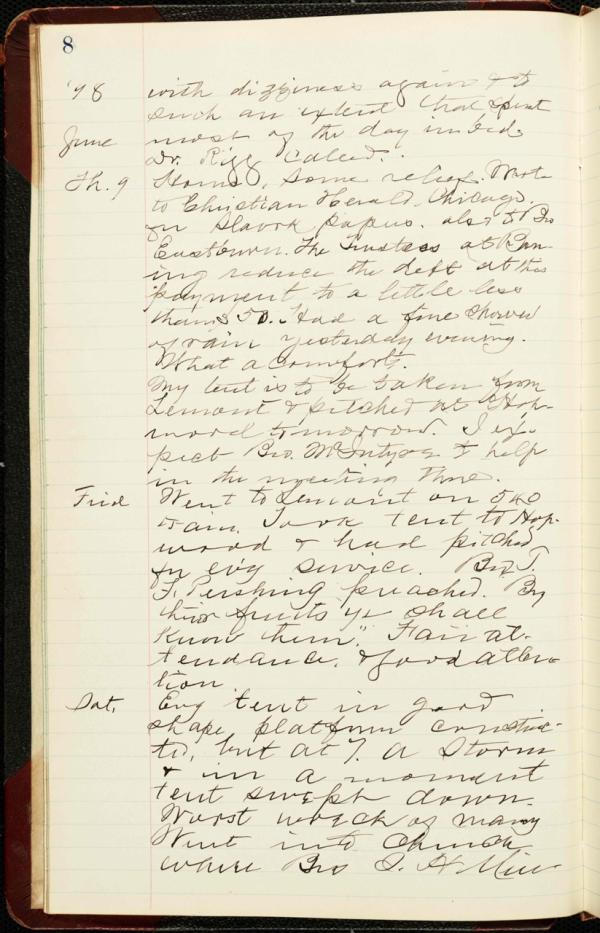 8
'98 with dizziness again & to
such an extent that spent
June most of the day in bed.
Dr. Rigg Called.
Th. 9 Home, some relief. Wrote
to Christian Herald, Chicago,
for Slavok papers. also to Bro
Eastburn. The Trustees at Ban-
ing reduce the debt at this
payment to a little less
than $50. Had a fine shower
of rain yesterday evening.
What a comfort.
My tent is to be taken from
Lemont & pitched at Hop-
wood tomorrow. I ex-
pect Bro. McIntyre to help
in the meeting there.
Frid Went to Lemont on 540
train. Took tent to Hop-
wood & had pitched
for evg service. Bro J.
F. Pershing preached. By
their fruits ye shall
Know them." Fair at-
tendance. & good atten-
tion
Sat. Evg tent in good
shape, platform construc-
ted, but at 7. a Storm
& in a moment
tent swept down.
Worst wreck of many
Went into Church
where Bro S. H.